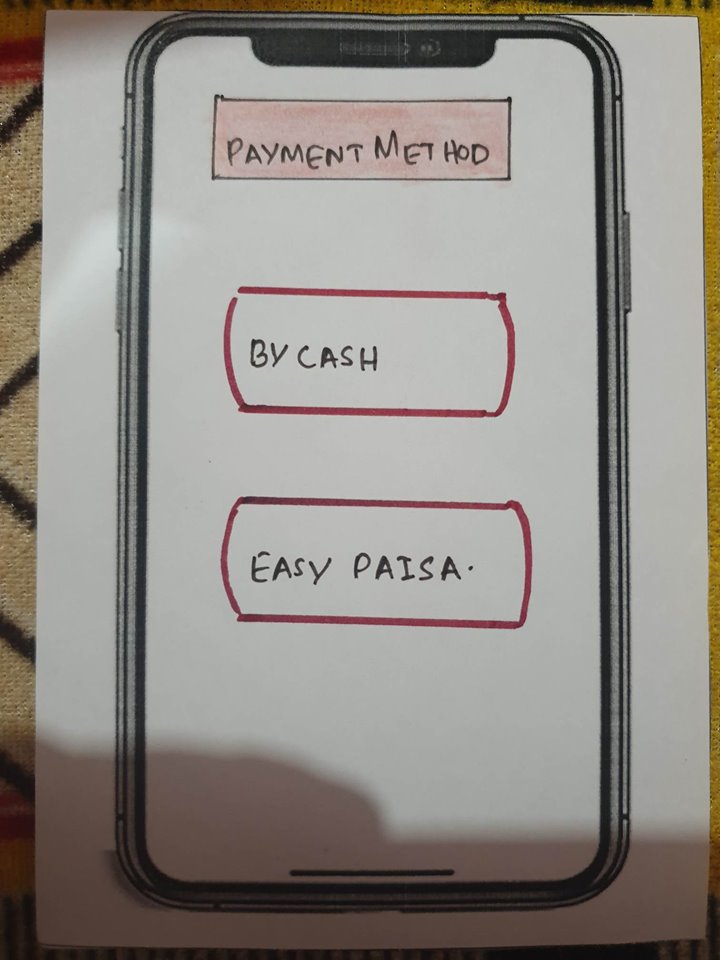 PAYMENT METHOD
BY CASH
EASY PAISA.